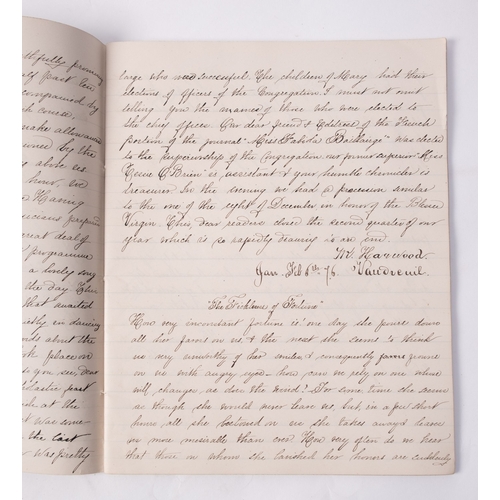 thfully promising
alf past ten
accompanied by
ch course,
make allowance
owned by the
y above us
hour, we
Having
great deal of
programme
a lively song
the day. The
that awaited
in dancing
nds about the
ok place on
you see, dear
part
at the
t was some-
the last
was pretty
large who was successful. The children of Mary had their
elections of officers of the Congregation. I must not omit
telling you the names of those who were elected to
the chief offices. Our dear friend & Editress of the French
portion of the journal "Miss Fabiola Bastange" was elected
to the superiorship of the Congregation our former superior Miss
O'Brien is assistant & your humble chronicler is
treasurer. In the evening we had a procession similar
to the one of the eight of December in honor of the Blessed
Virgin. Thus, dear readers closed the second quarter of our
year which is so rapidly drawing to an end.
Harwood.
Jan. Feb 6th /76. Vaudreuil.
"The Fickleness of Fortune"
How very inconstant fortune is! one day she pours down
all her favors on us & the next she seems to think
us very unworthy of her smiles & consequently frowns
on us with angry eyes. how can we rely on one whose
will, changes as does the wind? For some time she seems
as though, she would never leave us, but, in a few short
hours all she bestowed on us she takes away & leaves
us more miserable than ever. How very often do we hear
that those on whom she lavished her honors are suddenly